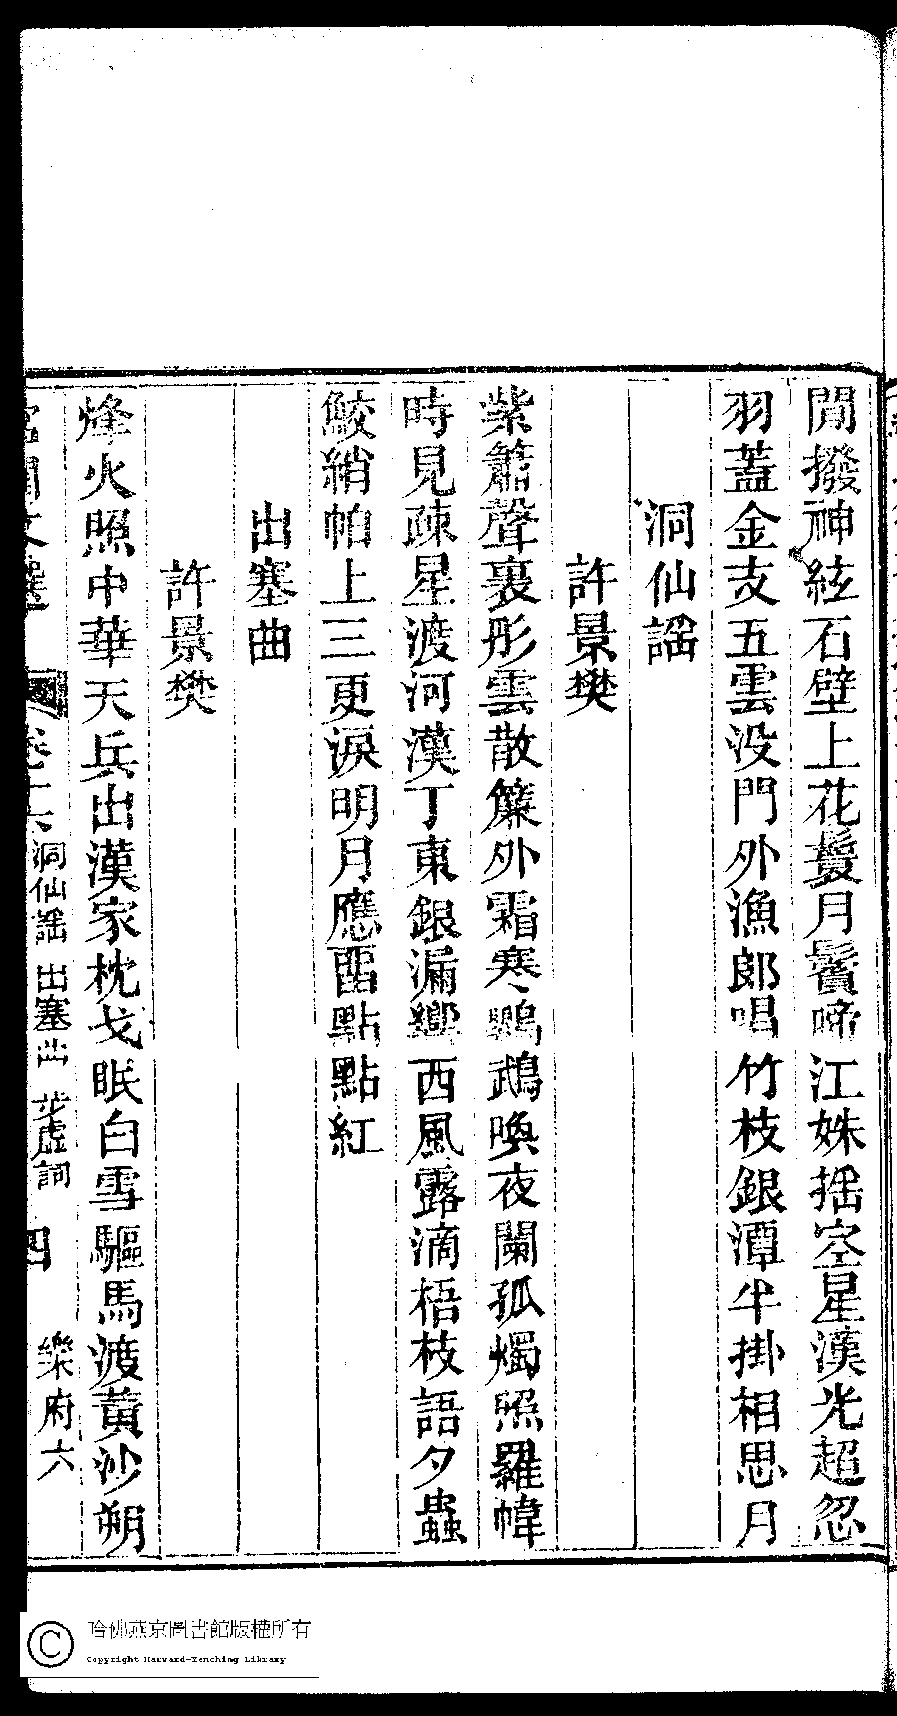 閒撥神絃石壁上花鬟月鬢啼江姝揺空星漢光超忽
羽蓋金支五雲没門外漁郎唱竹枝銀潭半掛相思月
洞仙謡
許景樊
紫簫聲裏彤雲散簾外霜寒鸚鵡喚夜闌孤燭照羅幃
時見疎星渡河漢丁東銀漏響西風露滴梧枝語夕蟲
鮫綃帕上三更淚明月應畱點點紅
出塞曲
許景樊
烽火照中華天兵出漢家枕戈眠白雪驅馬渡黄沙朔
宮閨文選 卷十六 洞仙謡 出塞曲 步虛詞 四 樂府六
哈佛燕京圖書館版權所有
Copyright Harvard-Yenching Library